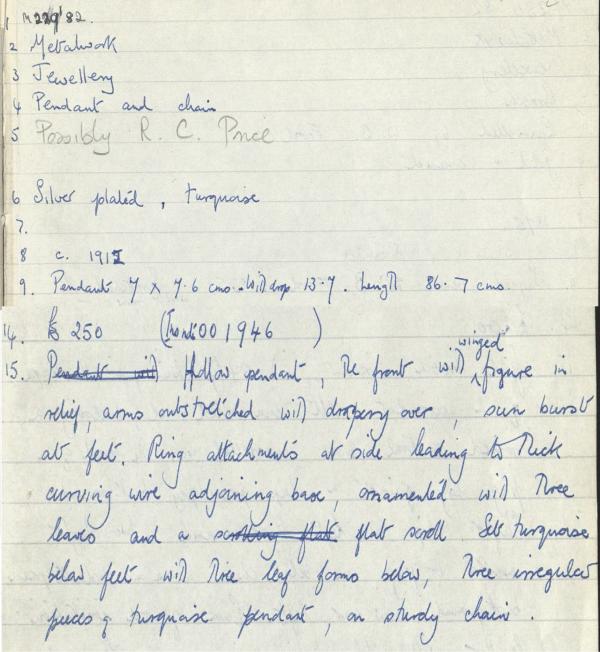 1 M229/82
2 Metalwork
3 Jewellery
4 Pendant and chain
5 Possibly R. C. Price
6 Silver plated, turquoise
7.
8 c. 1912
9. Pendant 7 x 7.6 cms. With drop 13.7. Length 86.7 cms
14. £ 250 ( 001946 )
15. Pendant with Hollow pendant, the front with winged figure in
relief, arms outstretched with drapery over, sun burst
at feet. Ring attachments at side leading to thick
curving wire adjoining base, ornamented with three
leaves and a scrolling flat flat scroll. Set turquoise
below feet with three leaf forms below, three irregular
pieces of turquoise pendant, on sturdy chain.